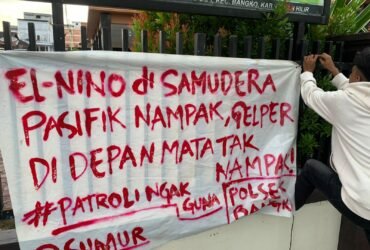 , KEC, BANGKO, KAB
HILIR
EL-NINO di SAMUDERA
PASIFIK NAMPAK, GELPER
DI DEPAN MATA TAK
NAMPAK!
#PATROLI NGAK
GUNA
POLSEK
BANGKO
SUMUR